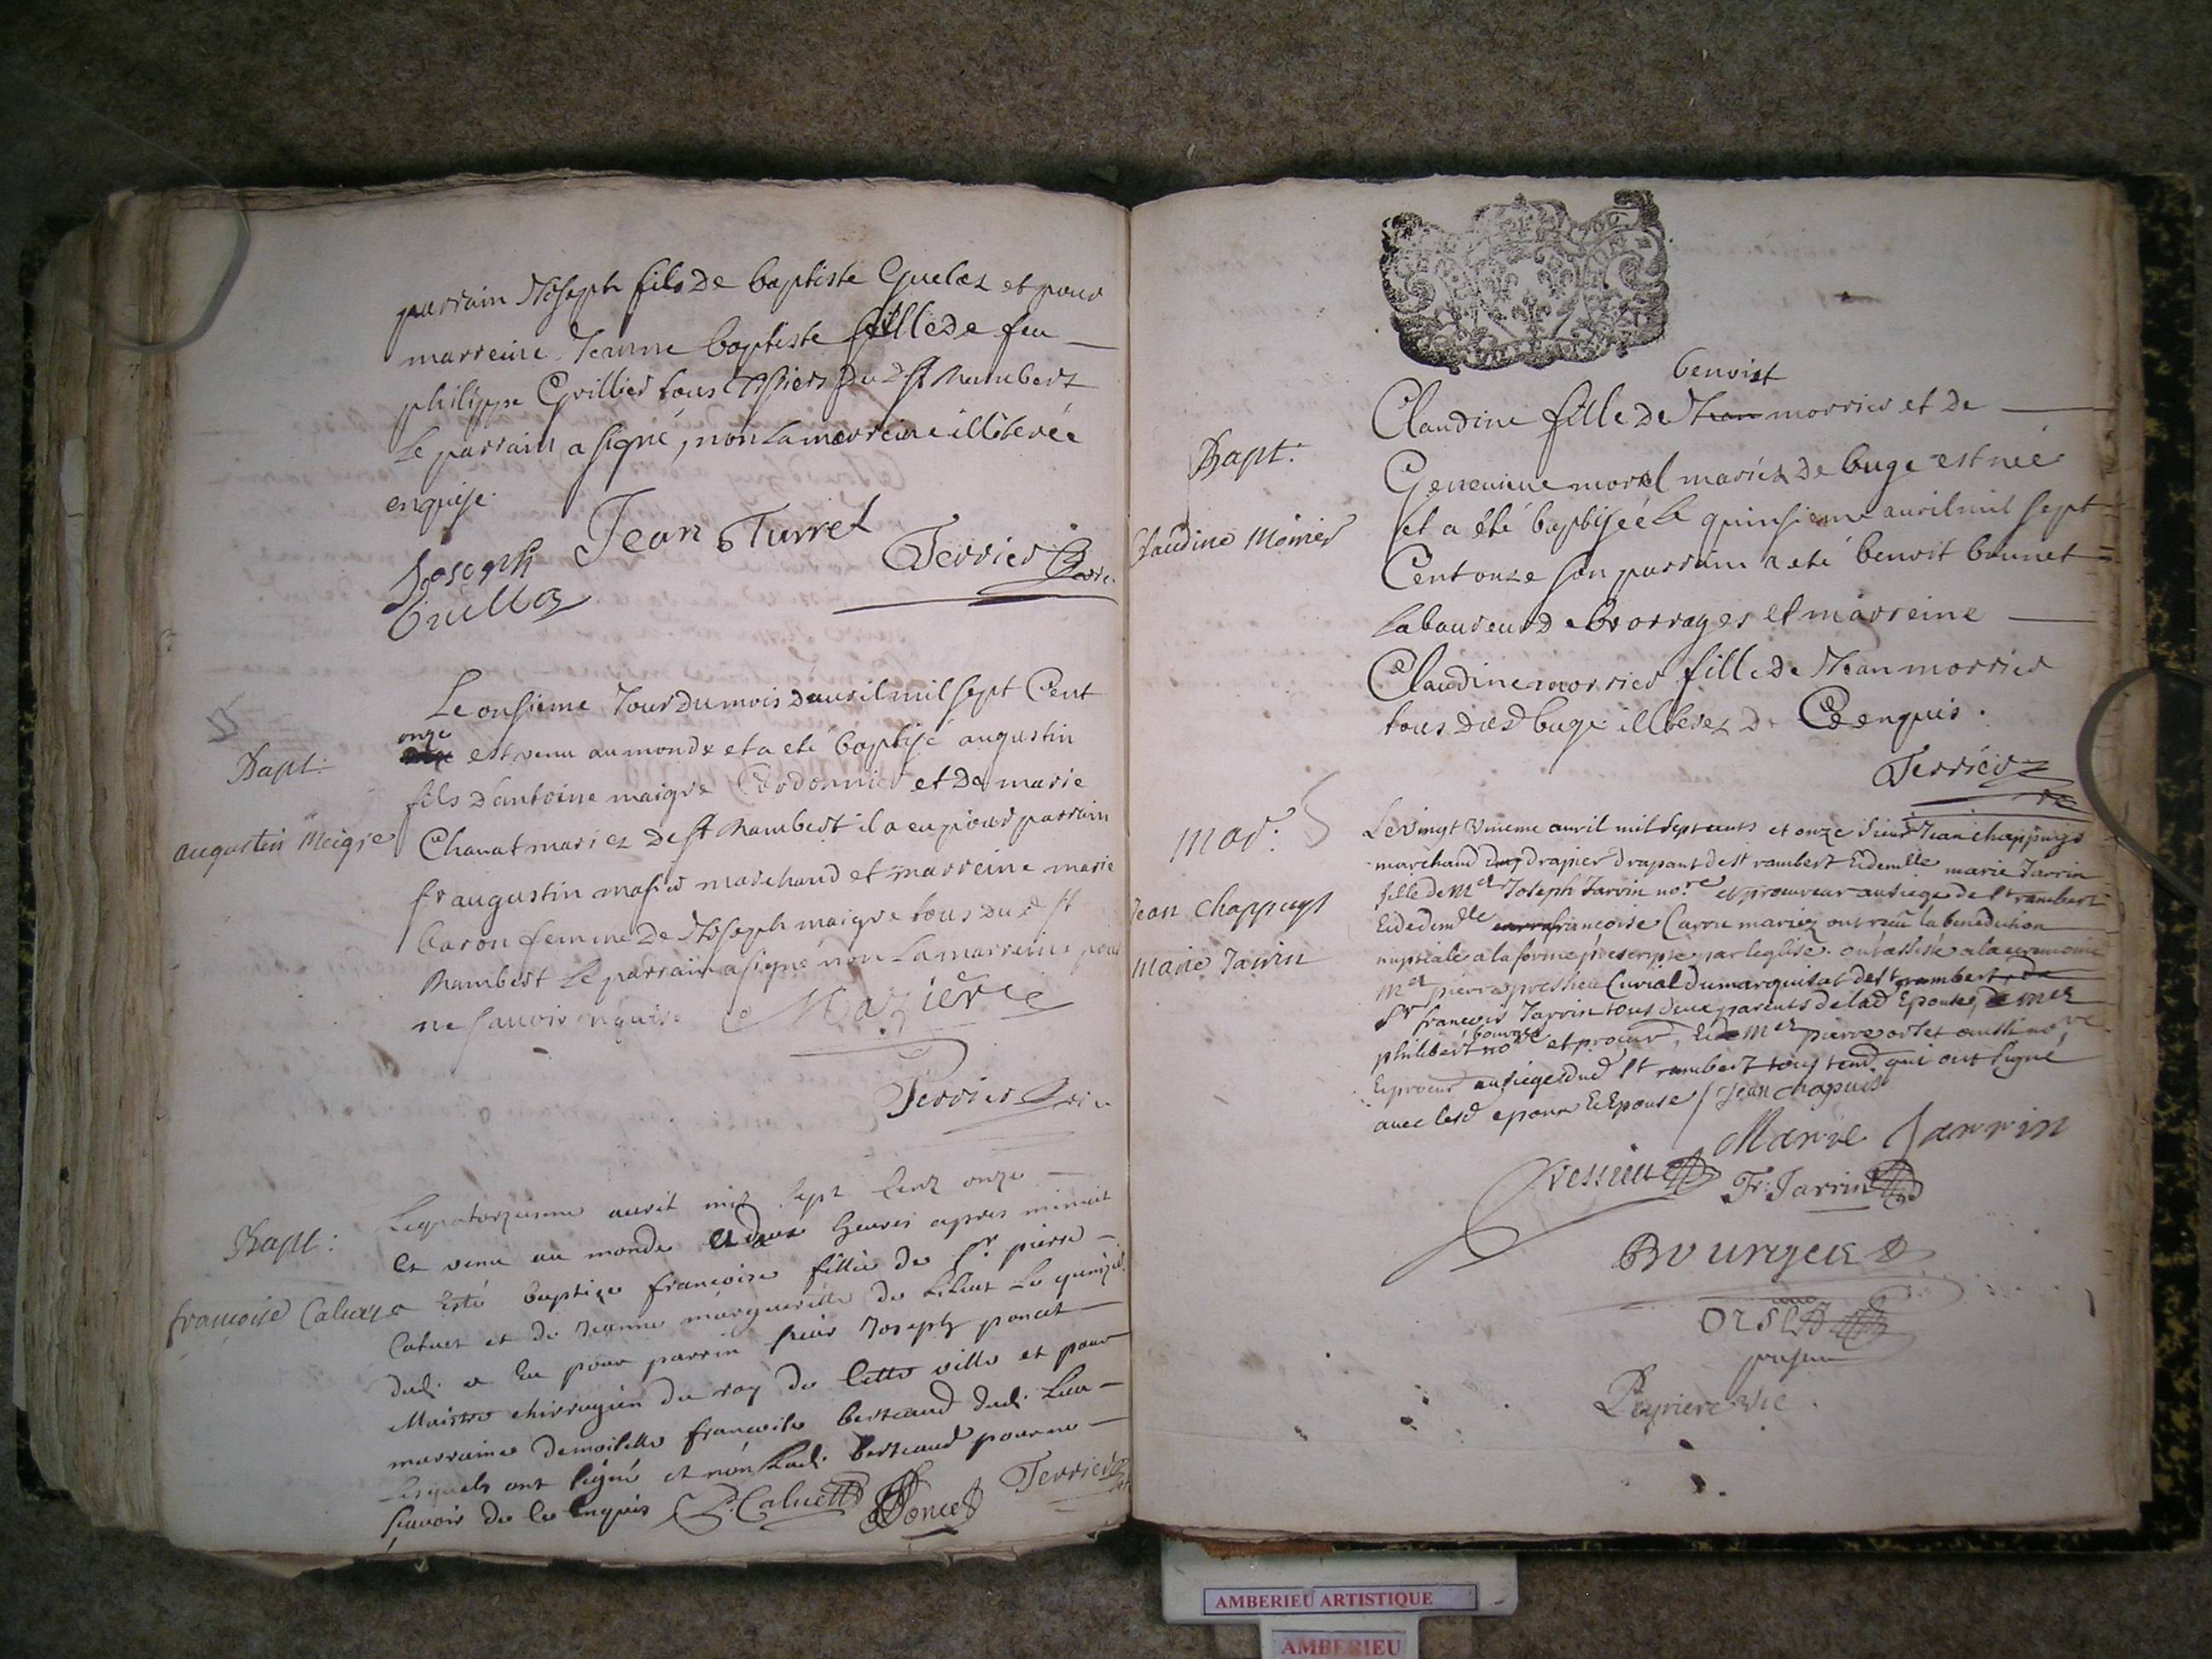 parrain Joseph fils de baptiste Guelaz et pour
marreine Jeanne baptiste fille de feu
philippe Grillier tous du d st Rambert
Le parrain a signé, non la marreine illiterée
enquise.
Joseph Jean Turrel Terrier
Le onsieme Jour du mois d'avril mil sept Cent
onze
est venu au monde et a eté baptisé augustin
Bapt:
fils d'antoine maigre Cordonnier et de marie
augustin Meigre
Chavat mariez de st Rambert il a eu pour parrain
fr augustin masier marchand et marreine marie
baron femme de Joseph maigre tous du d st
Rambert Le parrain a signé non La marreine pour
ne savoir enquise Mazierre
Terrier
Le quatorzieme avril mil sept Cent onze
Bapt:
Est venu au monde a deux heures apres minuit
francoise Caluet
a esté baptize francoise fillie de Sr pierre
Caluet et de Jeanne margueritte de Le quinzie
dud. a Eu pour parrin sieur Joseph poncet
Maistre chirurgien du roy de Cette ville et pour
marraine demoiselle francoise bertraud dud. Lieu
Lesquels ont signé et non Lad. bertraud pour ne
scavoir de Ce Enquis P. Caluet Poncet Terrier
benoist
Claudine fille de Jean morrier et de
Bapt:
Genevieve morel mariez de buge est née
Claudine Morrier
et a été baptisée Le quinsieme avril mil sept
Cent onze son parrain a eté benoit bonnet
Laboureur de Brorrages et marreine
Claudine morrier fille de Jean morrier
tous dud buge illiterez de Ce enquis.
Terrier
Mar:
Le vingt unieme avril mil sept cents et onze Sieur Jean chappuys
marchand drapier drapant de st rambert Et demlle marie Jarrin
fille de Me Joseph Jarrin nore et procureur au siege de st rambert
Jean Chappuys
Et de demlle francoise Carru mariez ont receu la benediction
Marie Jarrin
nuptiale a la forme prescripte par leglise. ont assisté a la ceremonie
Mer pierre Curial du marquisat de st rambert, de
Sr francois Jarrin tous deux parents de lad Epouse, de mer
bourgeois
philibert nore et procur, Et de Mer pierre orset aussi nore
Et procur au siege dud st rambert tous qui ont signé
avec lesd epoux Et Epouse / Jean chapuis
Marie Jarrin
Fr: Jarrin
Bourgeois
Orset
Peyriere vic.
AMBERIEU ARTISTIQUE
AMBERIEU